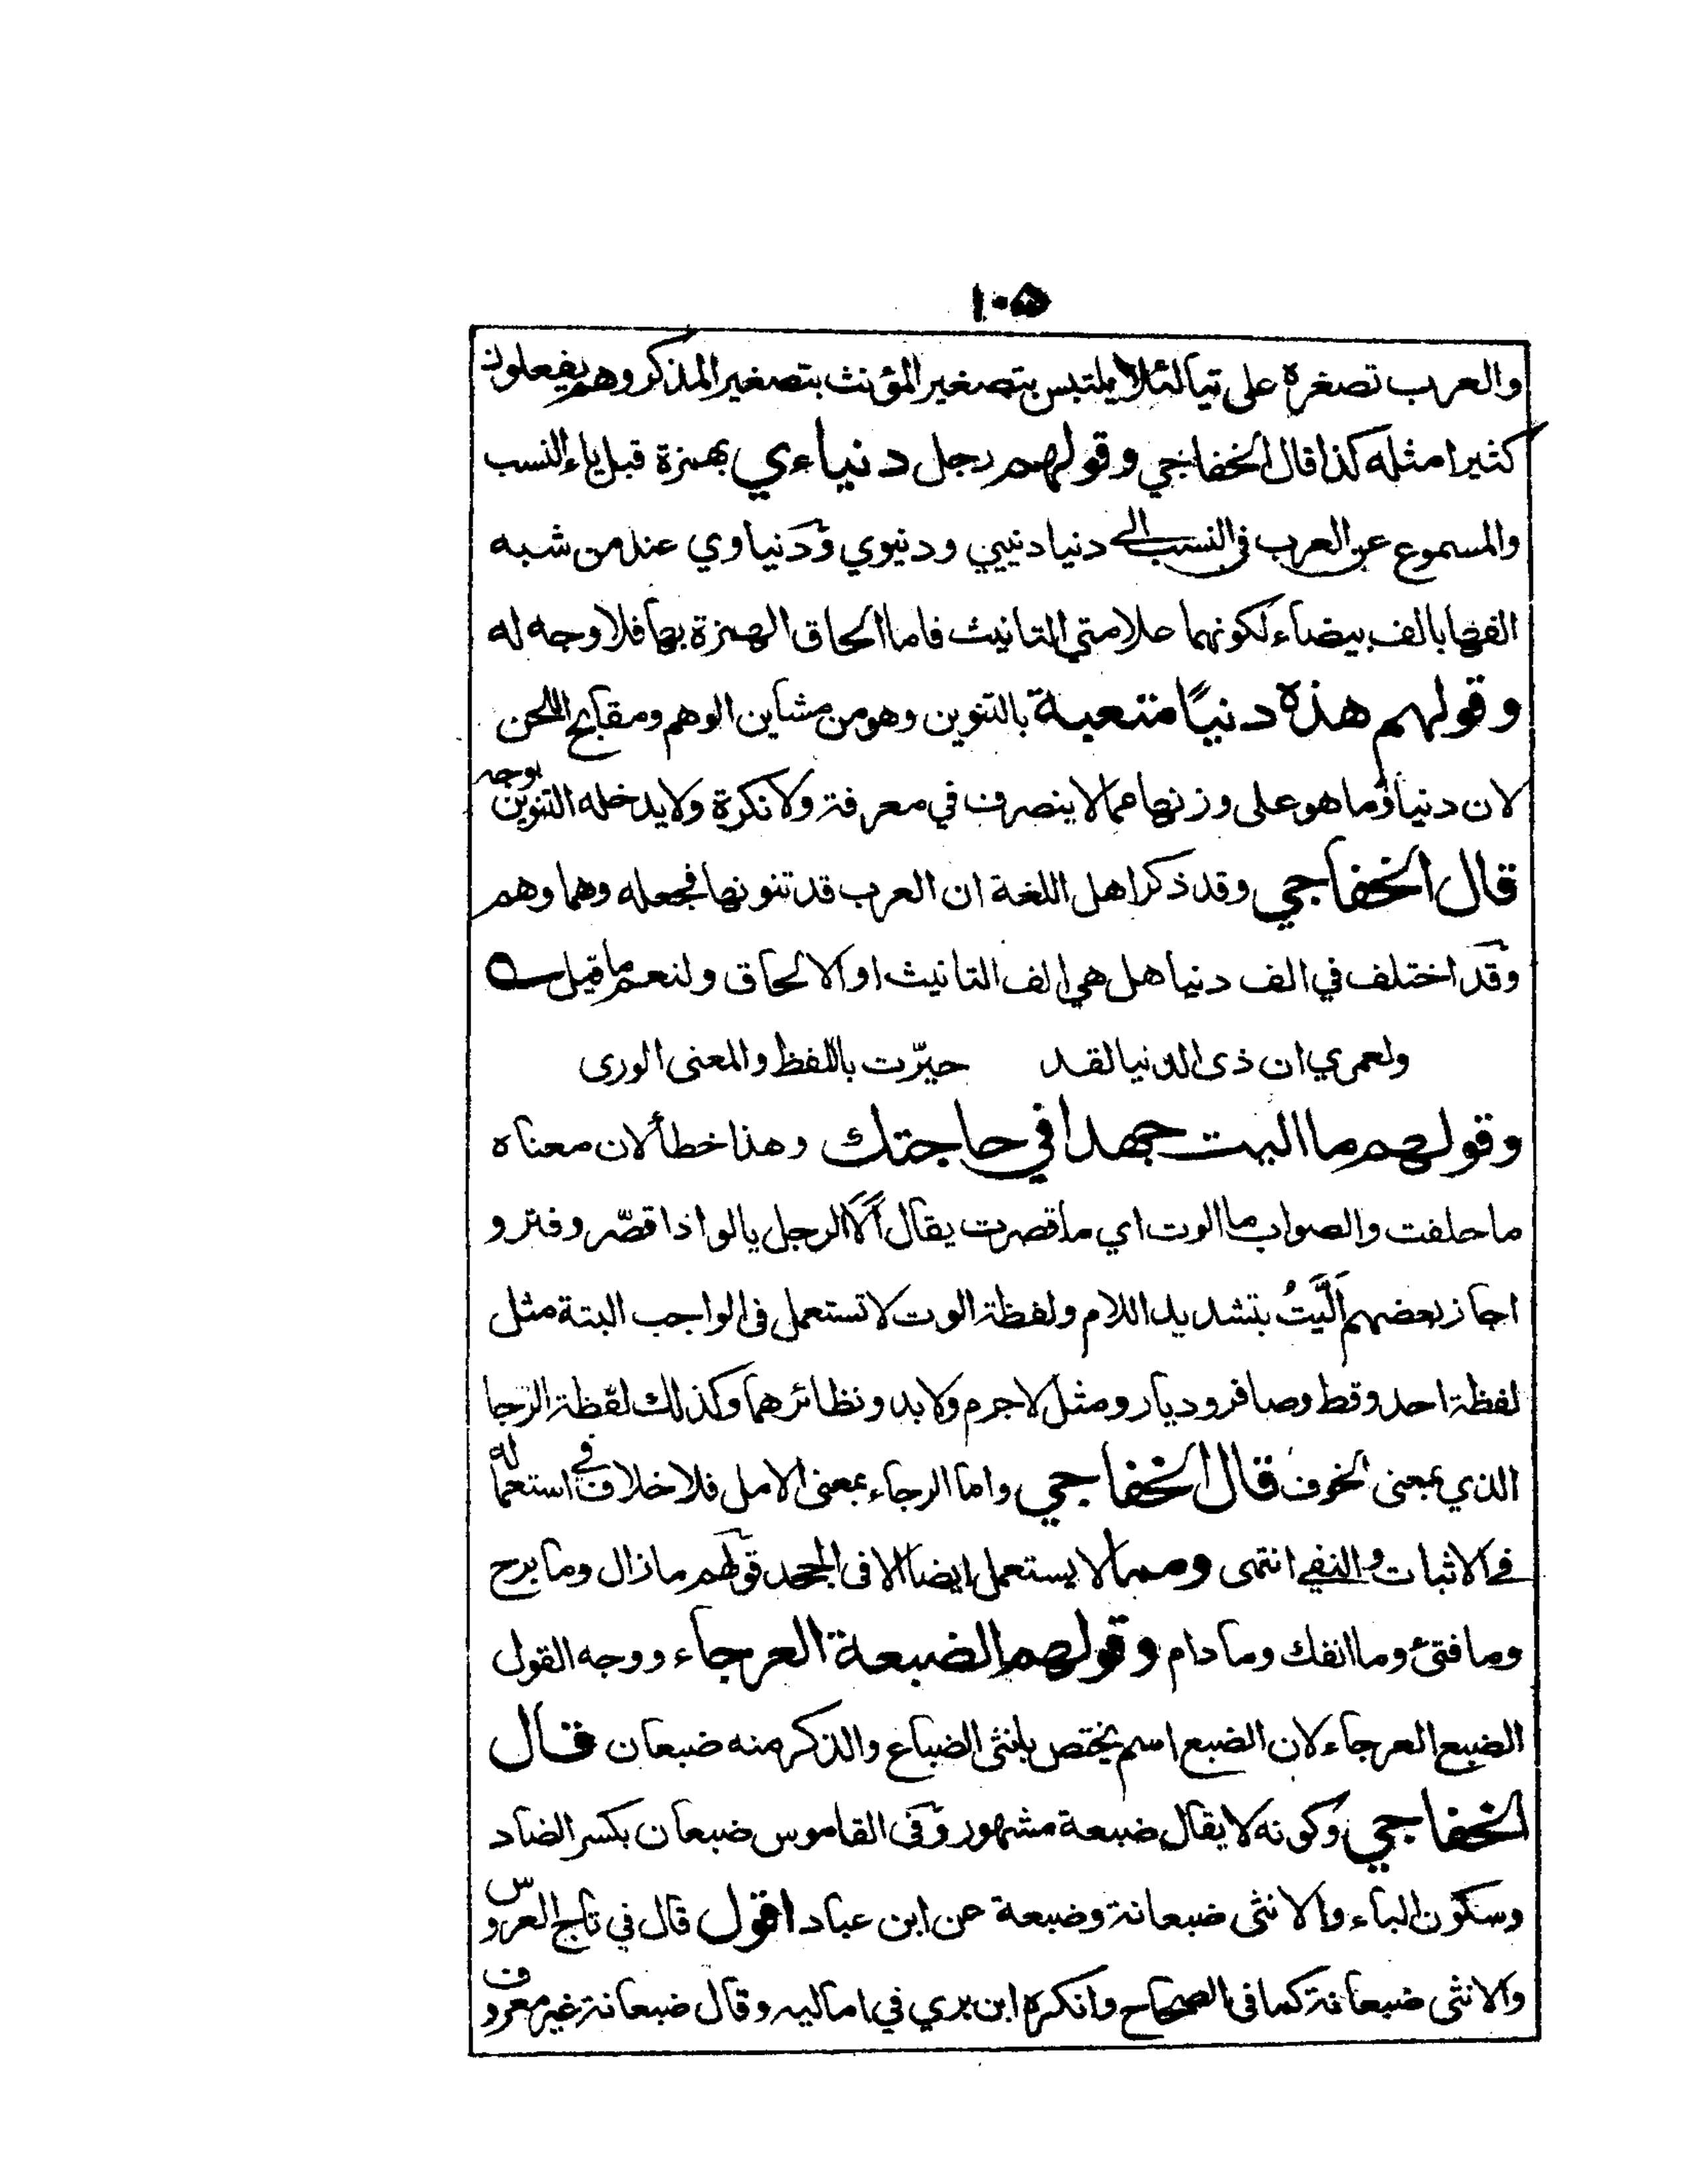 ١٠٥
والعرب تصغره على تيا لئلا يلتبس بتصغير المؤنث بتصغير المذكر وهم يفعلون
كثيرا مثله كذا قال الخفاجي وقولهم رجل دنياءي بهمزة قبل ياء النسب
والمسموع عن العرب في النسب الى دنيا دنيي ودنيوي ودنياوي عند من شبه
الفها بالف بيضاء لكونهما علامتي التانيث فاما الحاق الهمزة بها فلا وجه له
وقولهم هذه دنيًا متعبة بالتنوين وهو من مشاين الوهم ومقابح اللحن
لان دنيا وما هو على وزنها مما لا ينصرف في معرفة ولا نكرة ولا يدخله التنوين بوجه
قال الخفاجي وقد ذكر اهل اللغة ان العرب قد تنونها فجعله وهما وهم
وقد اختلف في الف دنيا هل هي الف التانيث او الالحاق ولنعم ما قيل
ولعمري ان ذى الدنيا لقد حيّرت باللفظ والمعنى الورى
وقولهم ما اليت جهدا في حاجتك وهذا خطأ لان معناه
ما حلفت والصواب ما الوت اي ما قصرت يقال ألا الرجل يالو اذا قصّر وفتر و
اجاز بعضهم اَلَّيتُ بتشديد اللام ولفظة الوت لا تستعمل في الواجب البتة مثل
لفظة احد وقط وصافر وديار ومثل لا جرم ولا بد ونظائرهما وكذلك لفظة الرجا
الذي بمعنى الخوف قال الخفاجي واما الرجاء بمعنى الامل فلا خلاف في استعماله
في الاثبات والنفي انتهى ومما لا يستعمل ايضا الا في الجحد قولهم ما زال وما برح
وما فتئ وما انفك وما دام وقولهم الضبعة العرجاء ووجه القول
الضبع العرجاء لان الضبع اسم يختص بانثى الضباع والذكر منه ضبعان قال
الخفاجي وكونه لا يقال ضبعة مشهور وفي القاموس ضبعان بكسر الضاد
وسكون الباء والانثى ضبعانة وضبعة عن ابن عباد اقول قال في تاج العروس
والانثى ضبعانة كما في الصحاح وانكره ابن بري في اماليه وقال ضبعانة غير معروف